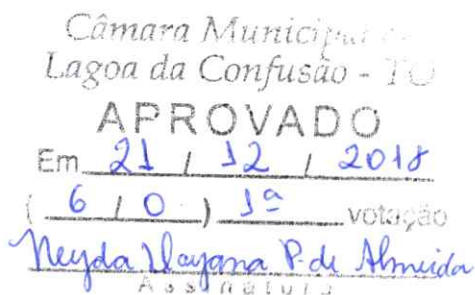 Câmara Municipal de
Lagoa da Confusão - TO
APROVADO
Em 21 / 12 / 2018
( 6 / 0 ) 1ª votação
Neyda Dayana P. de Almeida
Assinatura